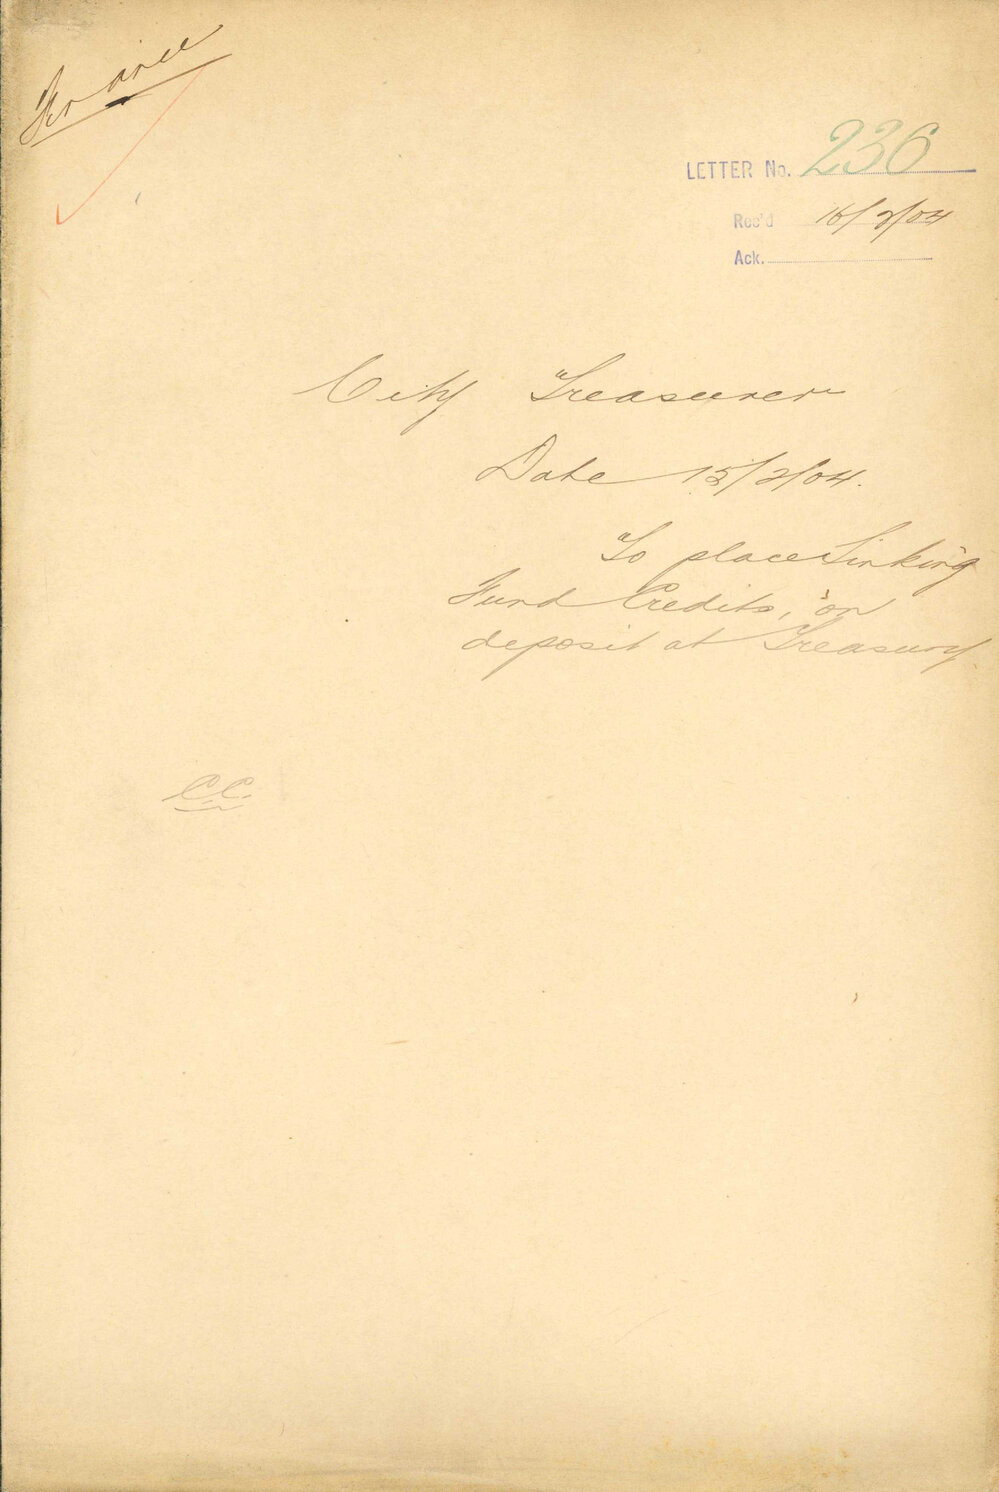 Finance
LETTER No. 236
Rec'd 16/2/04
Ack.
City Treasurer
Date 15/2/04.
To place Sinking
Fund Credits, on
deposit at Treasury.
C.C.